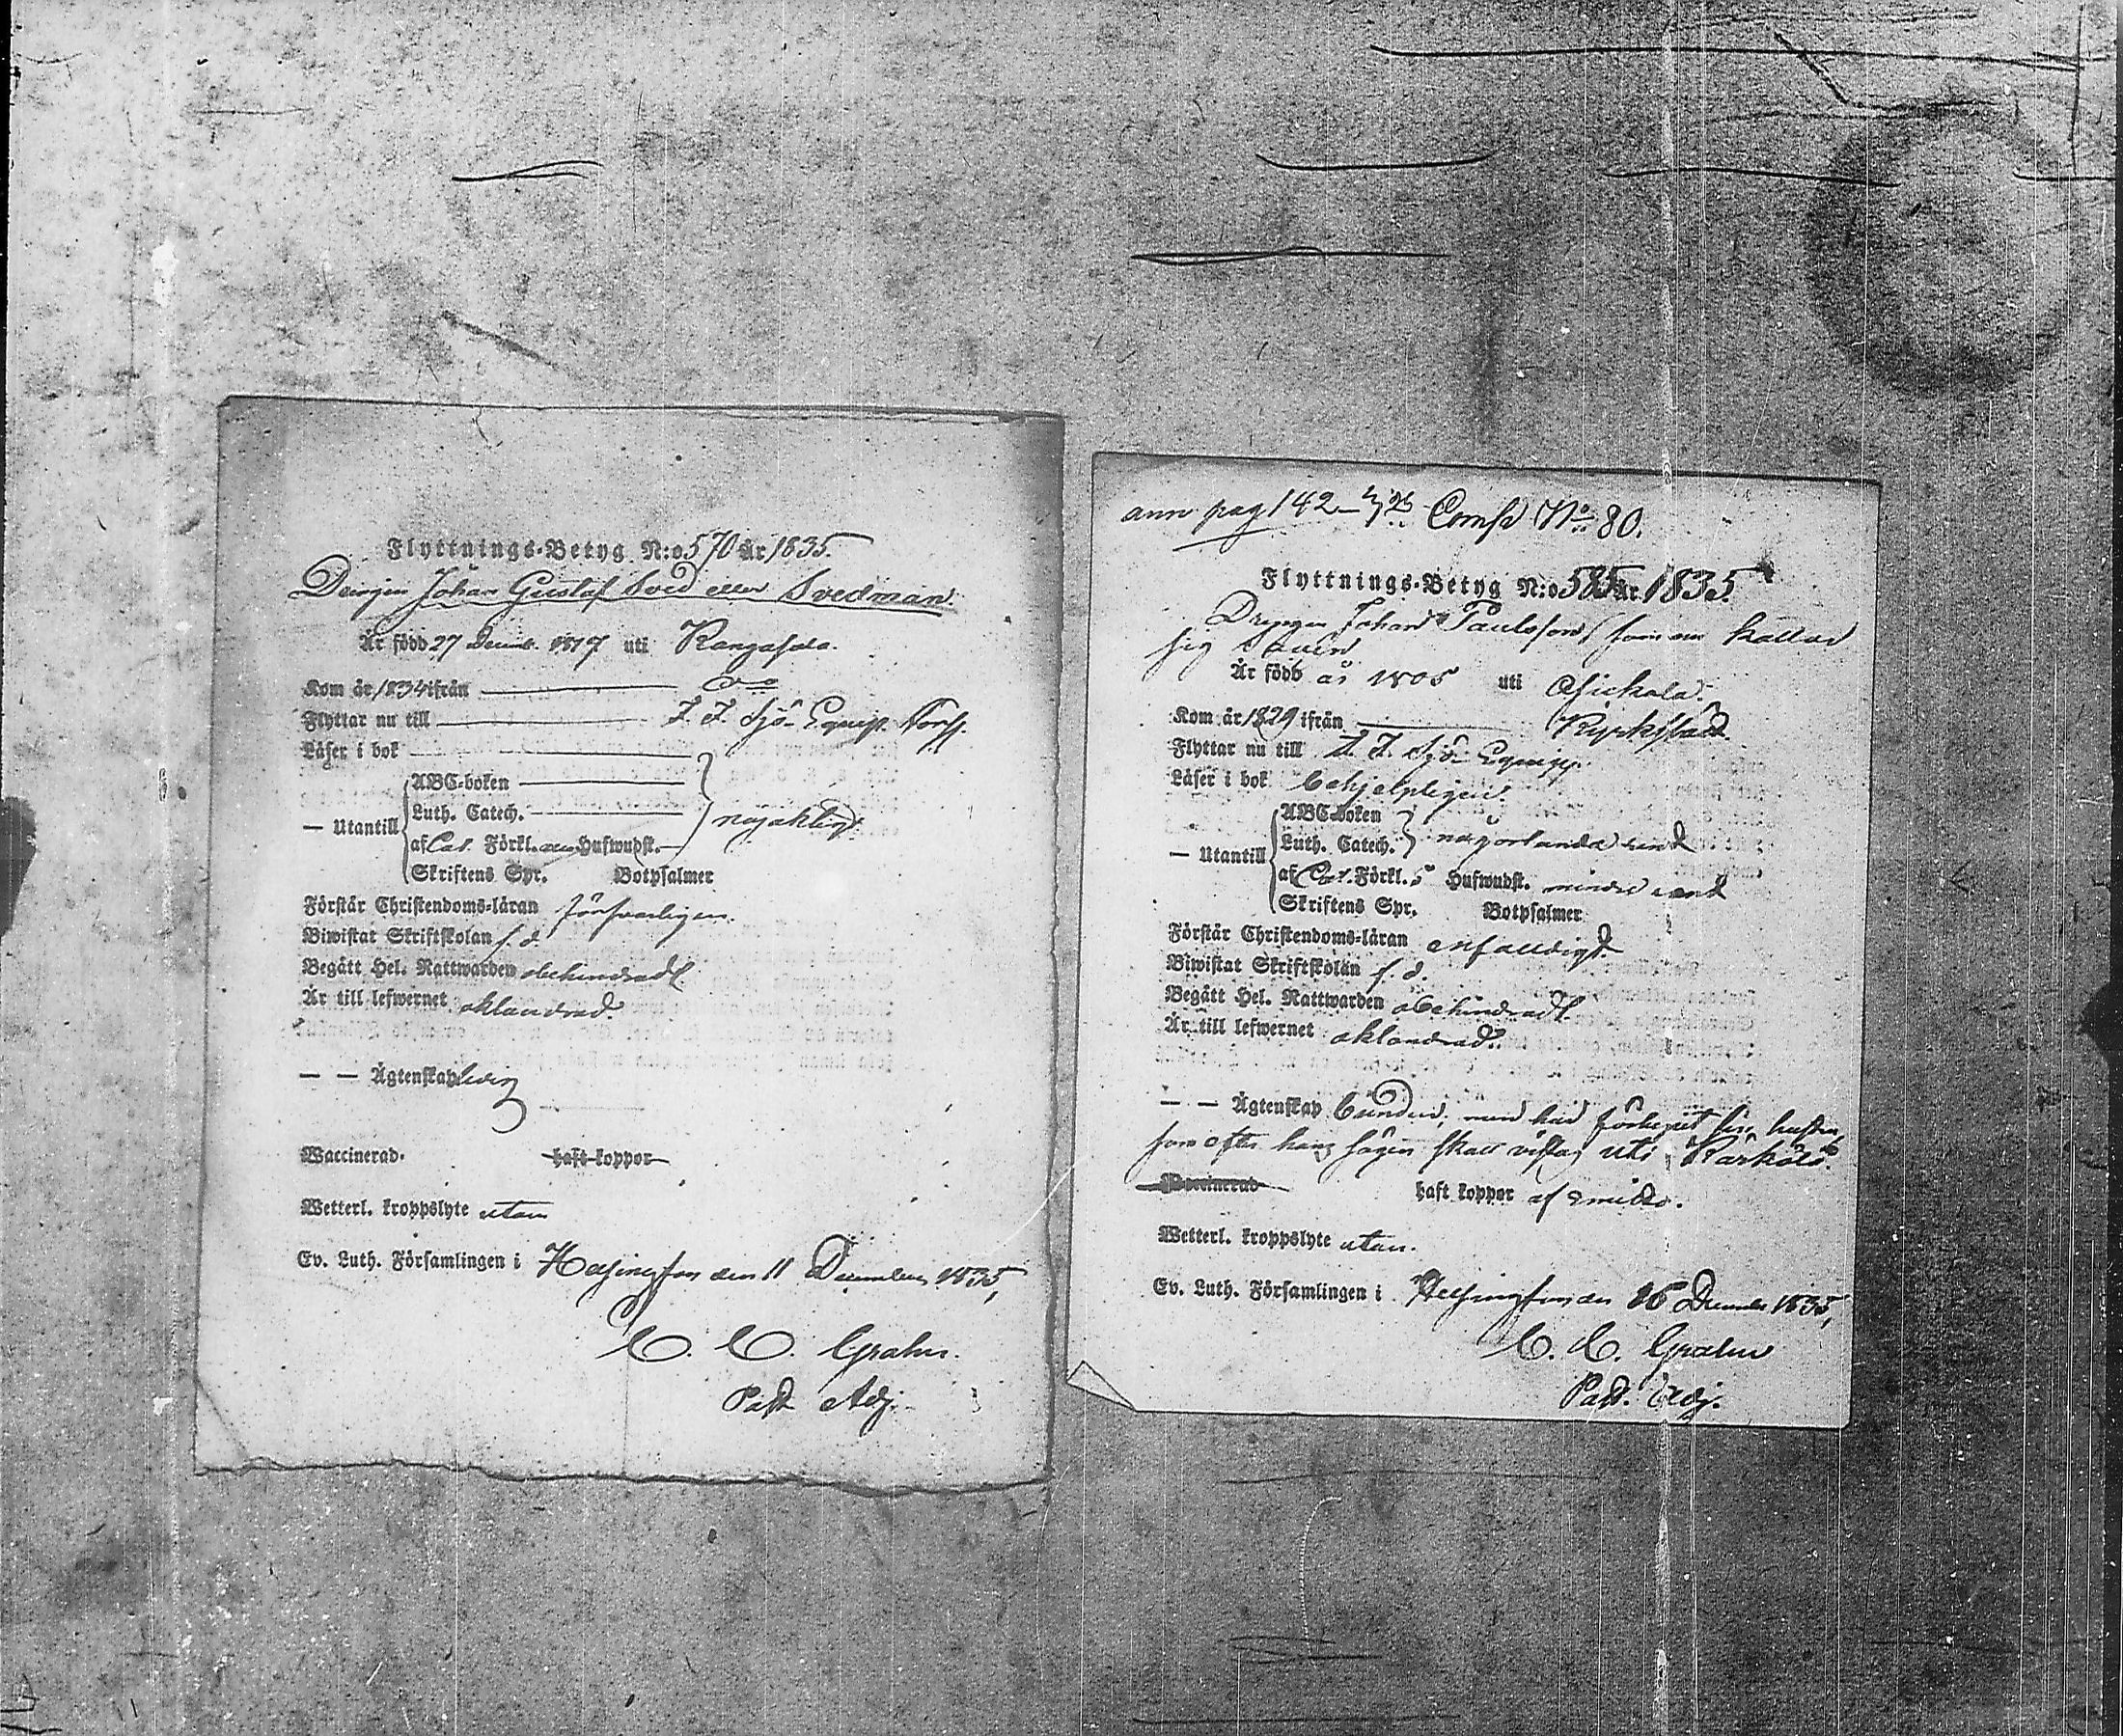 Flyttnings-Betyg N:o 570 År 1835.
Drängen Johan Gustaf Sved eller Svedman.
Är född 27 Decemb. 1817 uti Kangasala.
Kom år 1834 ifrån
Flyttar nu till F. F. Sjö Equip.
Läser i bok
ABC-boken
Luth. Catech.
— Utantill nöjaktigt
af Cat. Förkl. Hufwudst.
Skriftens Spr. Botpsalmer
Förstår Christendoms-läran försvarligen.
Biwistat Skriftskolan f. d.
Begått Hel. Nattwarden obehindradt.
Är till lefwernet oklandrad.
— — Ägtenskap ledig
Waccinerad. haft koppor
Wetterl. kroppslyte utan
Ev. Luth. Församlingen i Helsingfors den 11 December 1835,
C. C. Grahn.
Past. Adj.
ann pag 142 Comp N:o 80.
Flyttnings-Betyg N:o 585 År 1835.
Drängen Johan Paulsson som kallar
sig
Är född år 1805 uti Asickala.
Kom år 1829 ifrån Kyrkslätt
Flyttar nu till F. F. Sjö Equipp.
Läser i bok behjelpligen.
ABC-boken
Luth. Catech. någorlunda
— Utantill
af Cat. Förkl. 5 Hufwudst. mindre
Skriftens Spr. Botpsalmer
Förstår Christendoms-läran enfaldigt.
Biwistat Skriftskolan f. d.
Begått Hel. Nattwarden obehindradt.
Är till lefwernet oklandrad.
— — Ägtenskap bunden, men har förlupit sin hustru,
som efter hans sägen skall vistas uti Kärkölä.
Waccinerad haft koppor af
Wetterl. kroppslyte utan.
Ev. Luth. Församlingen i Helsingfors den 16 December 1835,
C. C. Grahn
Past. Adj.